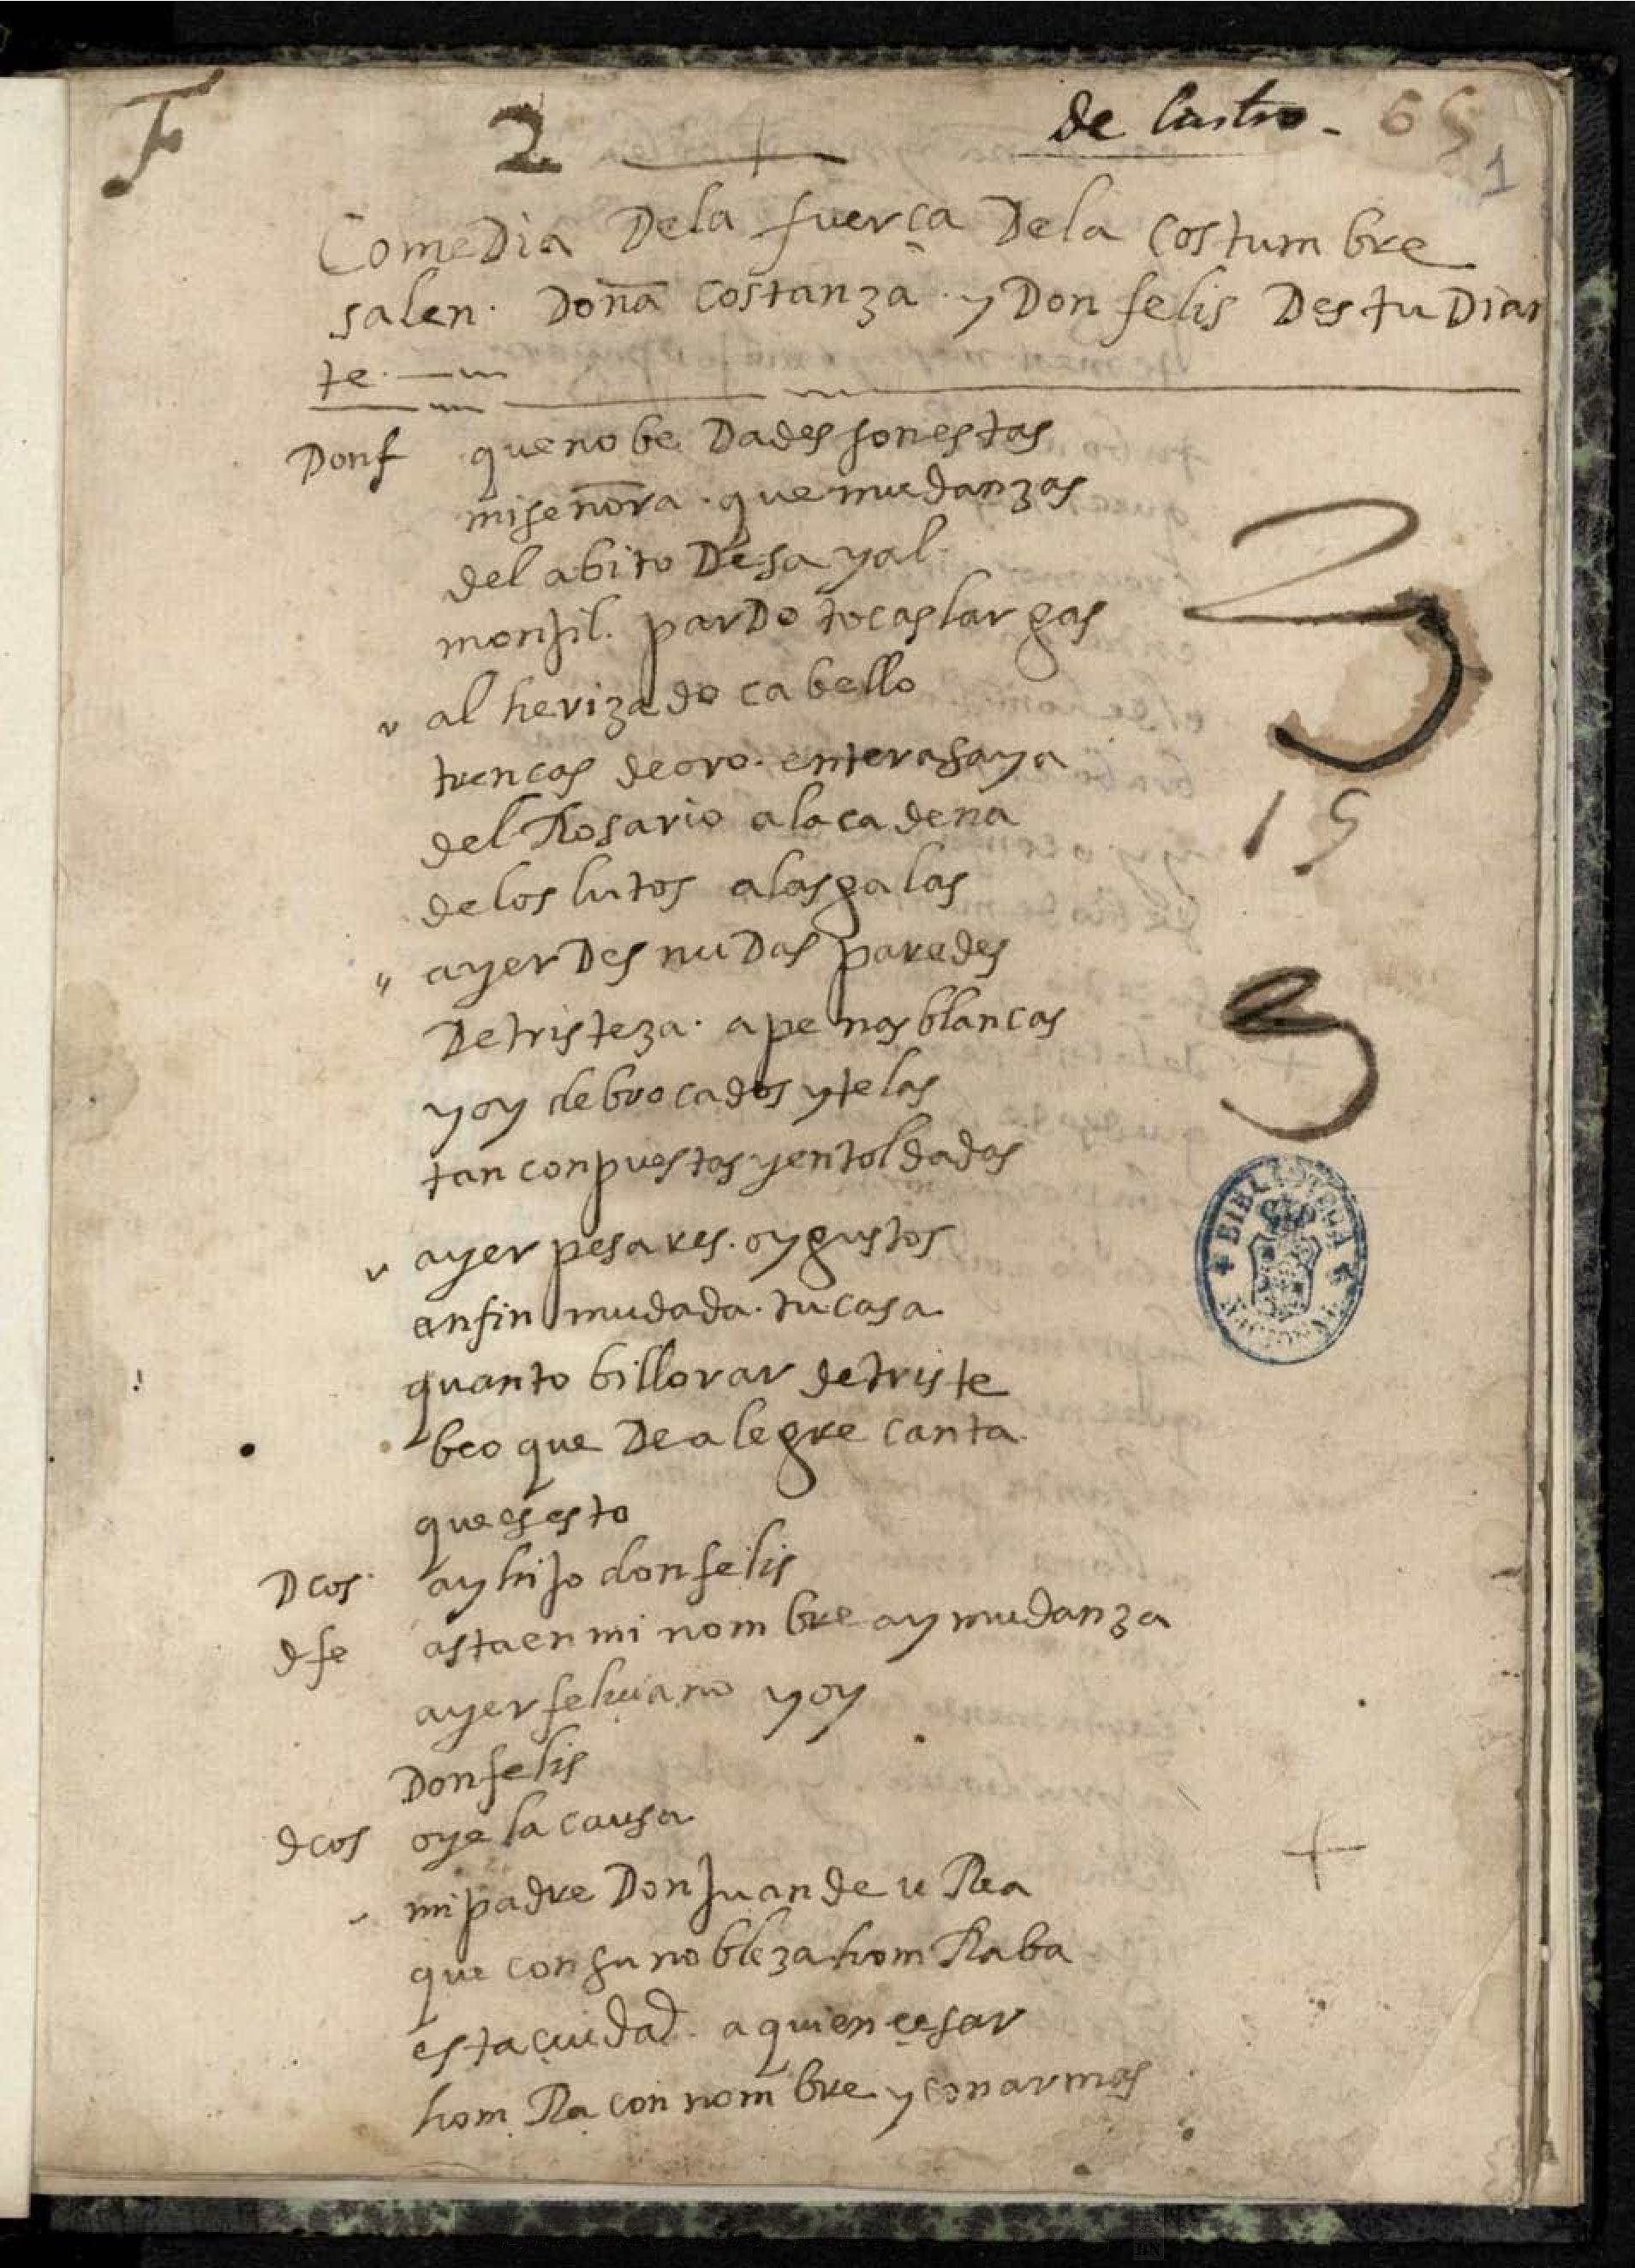 F 2 de Castro - 65
1
Comedia Dela fuerça Dela costumbre
salen. Doña costanza y Don felis Destudian
te
Donf que nobedades son estas
mi señora. que mudanzas
del abito De sayal
monjil. pardo tocas largas
al herizado cabello
trencas de oro. entera saya
del Rosario a la cadena
de los lutos a las galas
ayer Desnudas paredes
De tristeza. apenas blancas
y oy de brocados y telas
tan conpuestas y entoldadas
ayer pesares. oy gustos
en fin mudada. tu casa
quanto bi llorar de triste
beo que De alegre canta
que es esto
Dcos. ay hijo don felis
dfe asta en mi nombre ay mudanza
ayer feliciano y oy
Don felis
dcos oye la causa
mi padre Don Juan de uRea
que con su nobleza honRaba
esta ciudad. a quien cesar
honRa con nombre y con armas
2
3
15
3
BIBLIOTECA NACIONAL